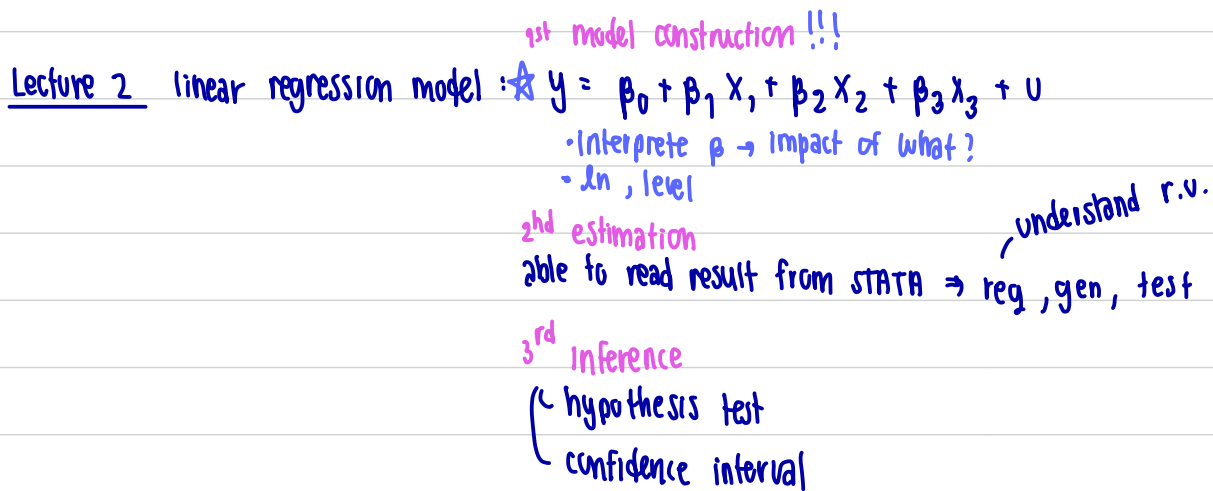 1st model construction !!!
Lecture 2 linear regression model : ☆ y = β₀ + β₁ X₁ + β₂ X₂ + β₃ X₃ + U
• interprete β → impact of what?
- ln , level
2nd estimation
understand r.v.
able to read result from STATA ⇒ reg , gen , test
3rd inference
hypothesis test
confidence interval